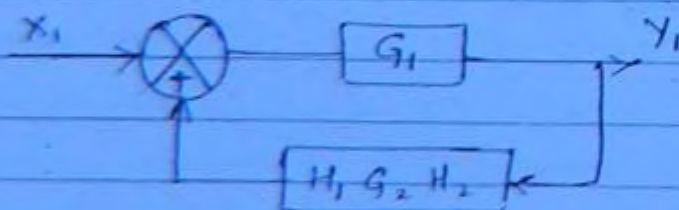 X₁ G₁ Y₁
+
H₁ G₂ H₂